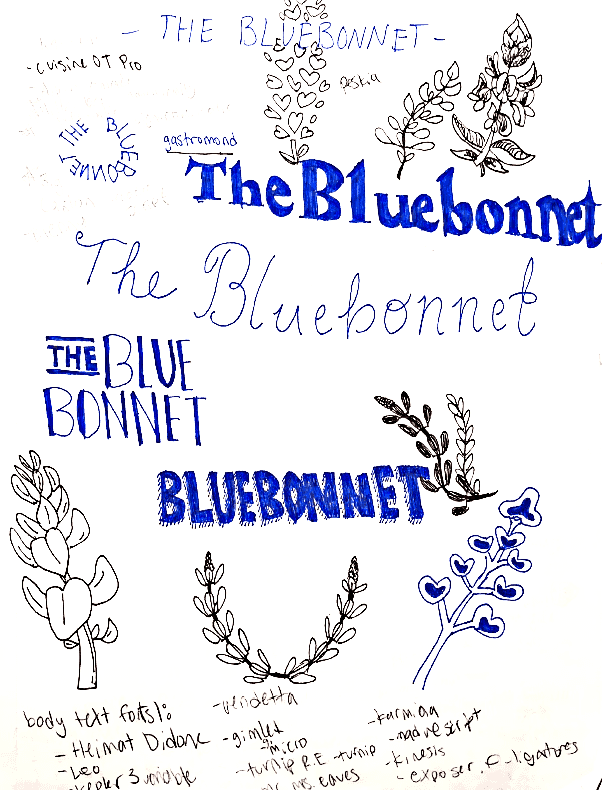 - THE BLUEBONNET -
- cuisine OT Pro
THE BLUEBONNET
gastromond
The Bluebonnet
The Bluebonnet
THE BLUE
BONNET
BLUEBONNET
body text fonts!:
- Heimat Didone
- Leo
- kepler 3 variable
- vendetta
- gimlet
- micro
- turnip R.E. - turnip
mrs eaves
- karmina
- madre script
- kinesis
- exposer. ligatures